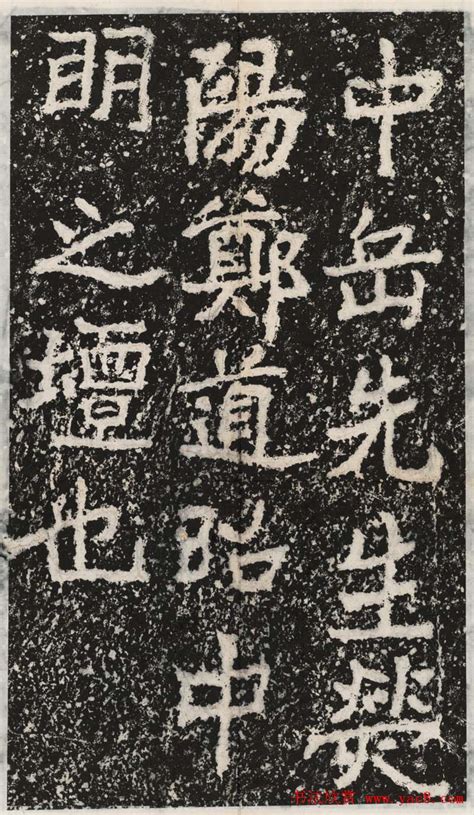 中岳先生熒
陽鄭道昭中
明之壇也
书法欣赏 www.yac8.com